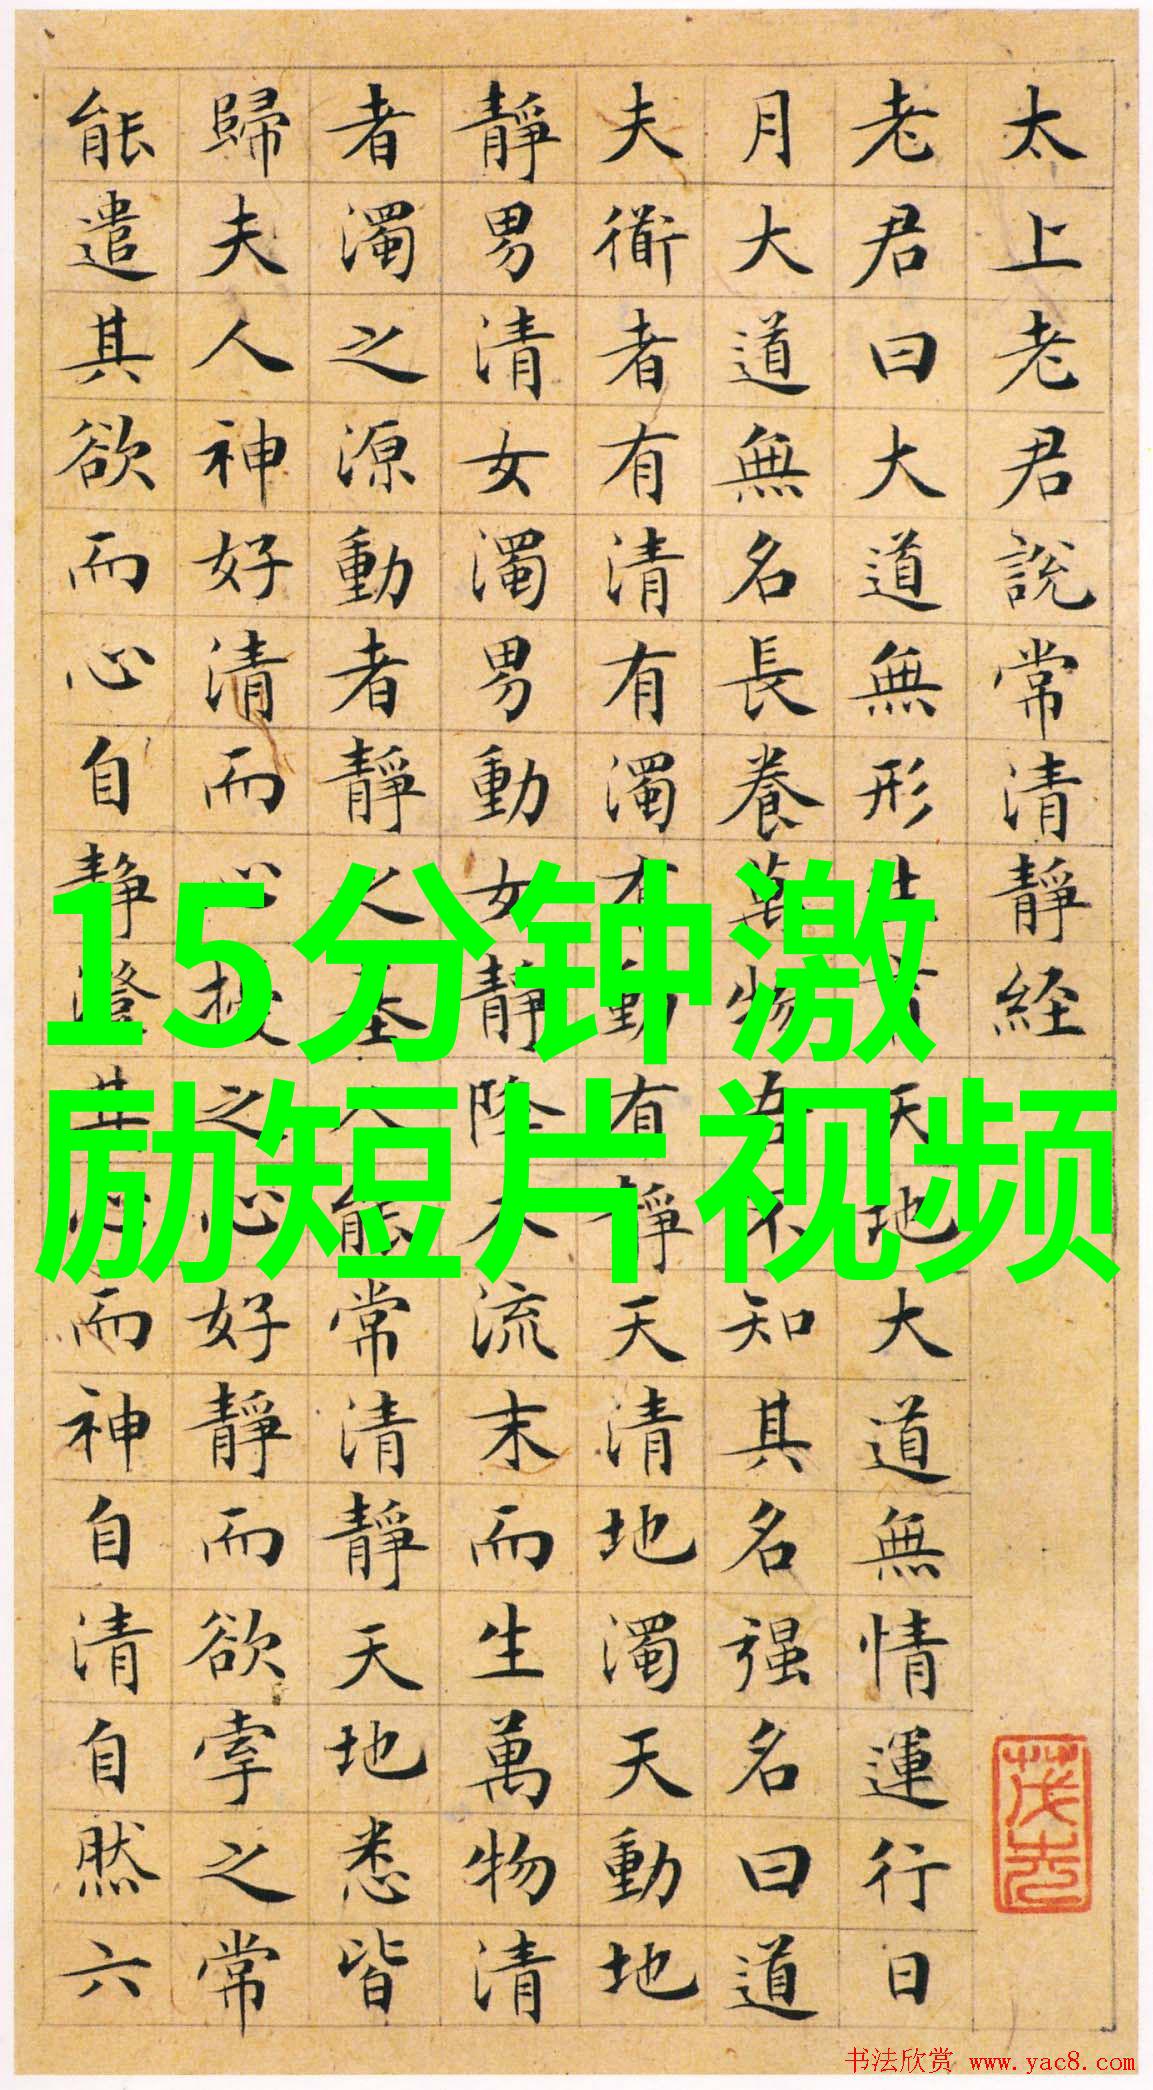 太上老君說常清靜経
老君曰大道無形生育天地大道無情運行日
月大道無名長養萬物吾不知其名强名曰道
夫衜者有清有濁有動有靜天清地濁天動地
靜男清女濁男動女靜降夲流末而生萬物清
者濁之源動者靜之基人能常清靜天地悉皆
歸夫人神好清而心擾之心好靜而欲牽之常
能遣其欲而心自静澄其心而神自清自然六
15分钟激
励短片视频
书法欣赏 www.yac8.com